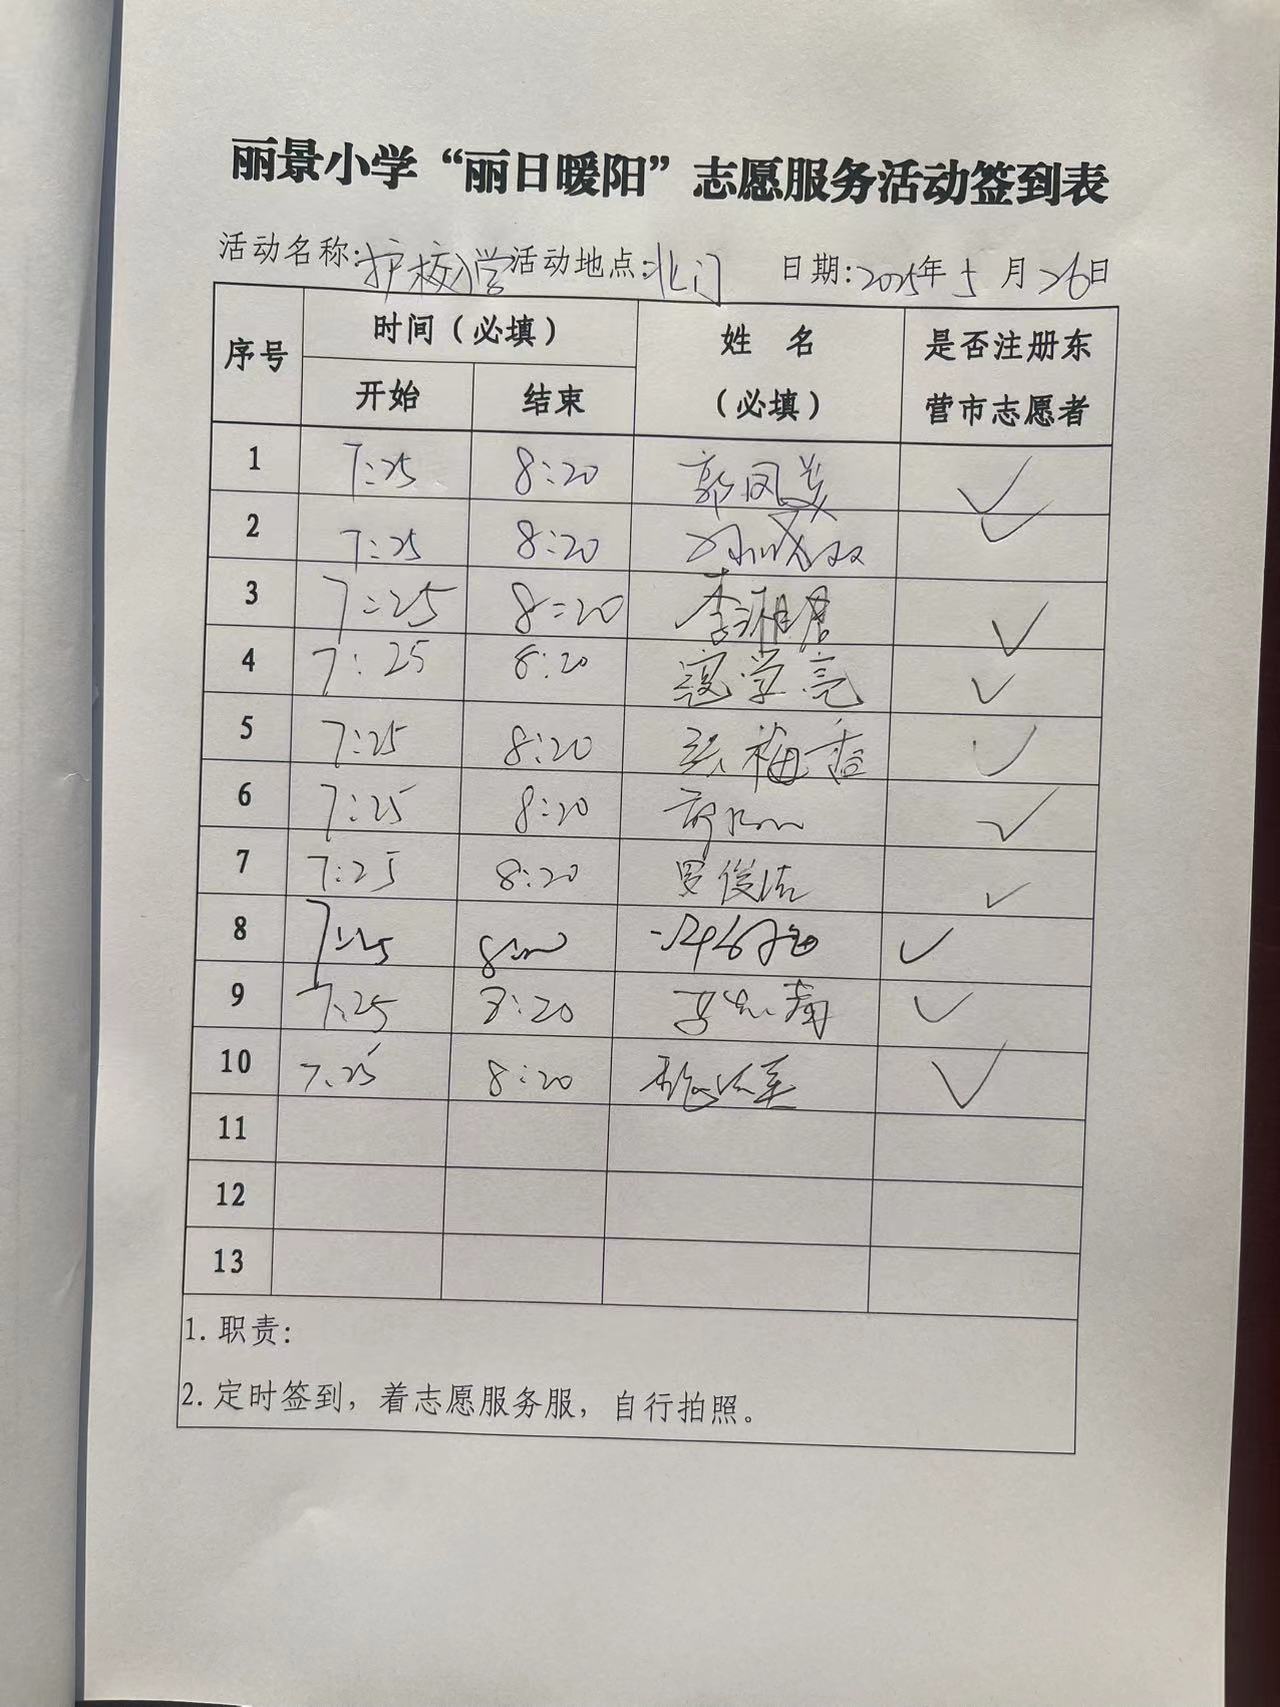 丽景小学“丽日暖阳”志愿服务活动签到表
活动名称:护校入学 活动地点:北门 日期:2025年5月26日
序号 时间（必填） 姓 名 是否注册东
开始 结束 （必填） 营市志愿者
1 7:25 8:20 郭凤美 ✓
2 7:25 8:20 ✓
3 7:25 8:20 李湘君 ✓
4 7:25 8:20 寇学亮 ✓
5 7:25 8:20 张梅香 ✓
6 7:25 8:20 ✓
7 7:25 8:20 罗俊洁 ✓
8 7:25 8:20 ✓
9 7:25 8:20 ✓
10 7:25 8:20 ✓
11
12
13
1. 职责:
2. 定时签到，着志愿服务服，自行拍照。